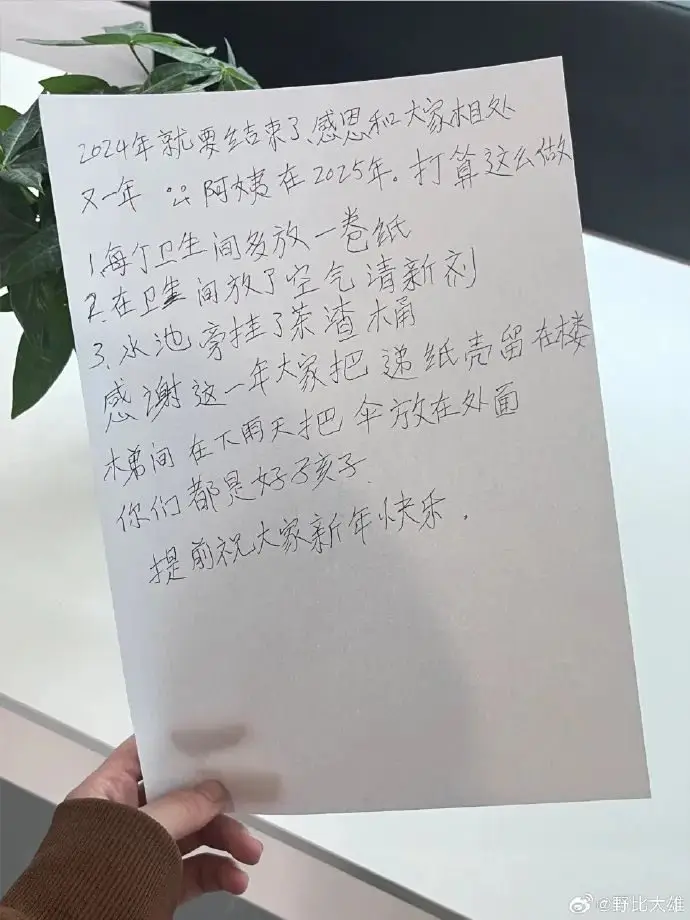 2024年就要结束了、感恩和大家相处
又一年 阿姨在2025年。打算这么做
1.每个卫生间多放一卷纸
2.在卫生间放了空气清新剂
3、水池旁挂了茶渣桶
感谢这一年大家把递纸壳留在楼
梯间在下雨天把伞放在外面
你们都是好孩子.
提前祝大家新年快乐.
@野比大雄